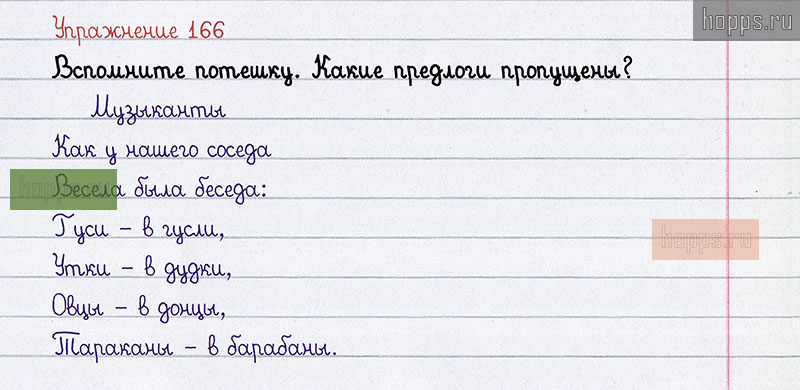 Упражнение 166
hopps.ru
Вспомните потешку. Какие предлоги пропущены?
Музыканты
Как у нашего соседа
Весела была беседа:
Гуси – в гусли,
hopps.ru
Утки – в дудки,
Овцы – в донцы,
Тараканы – в барабаны.